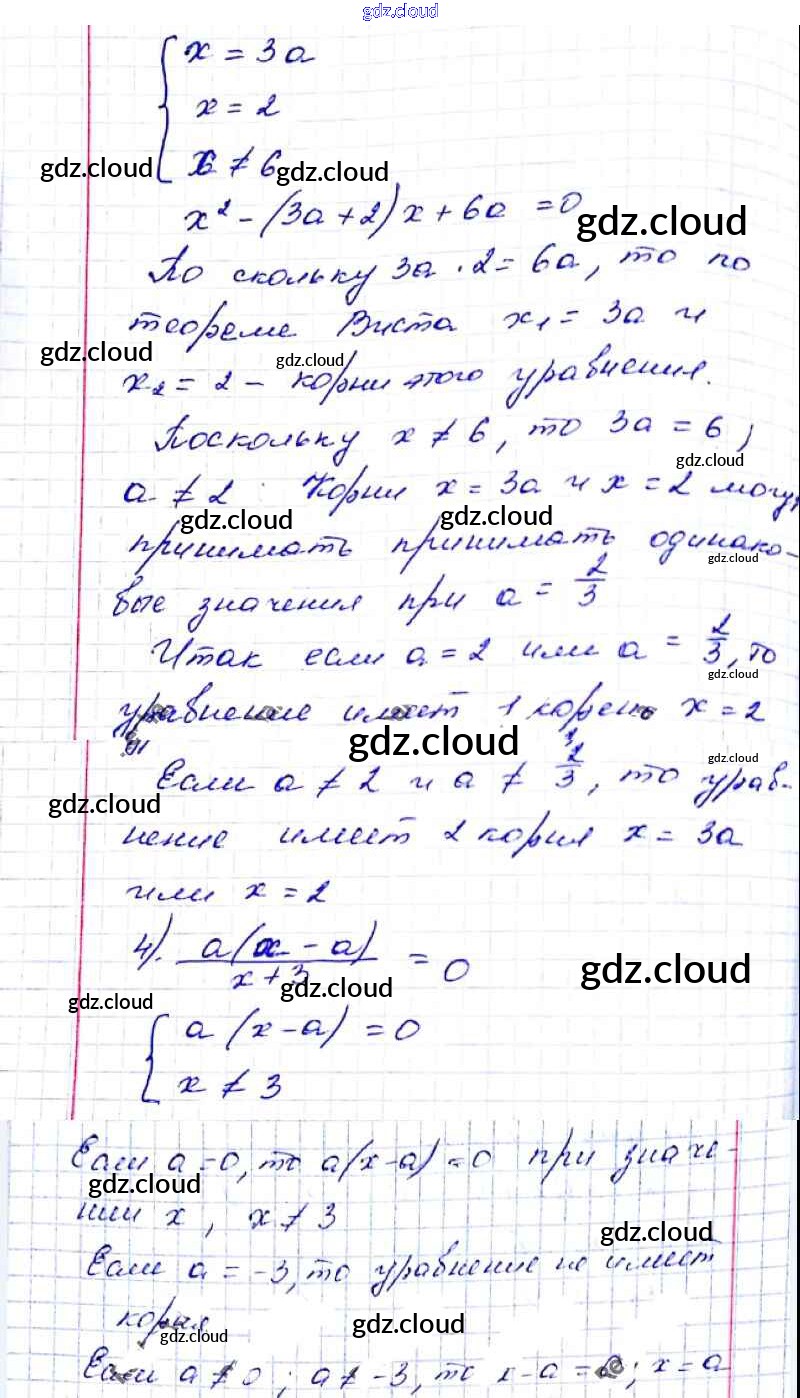 gdz.cloud
{ x = 3a
x = 2
x ≠ 6
gdz.cloud gdz.cloud
x² - (3a + 2)x + 6a = 0
gdz.cloud
По скольку 3a · 2 = 6a, то по
теореме Виета x₁ = 3a и
gdz.cloud gdz.cloud
x₂ = 2 - корни этого уравнения.
Поскольку x ≠ 6, то 3a = 6,
gdz.cloud
a ≠ 2. Корни x = 3a и x = 2 могут
gdz.cloud gdz.cloud
принимать принимать одинако-
gdz.cloud
вые значения при a = 2/3
Итак если a = 2 или a = 2/3, то
gdz.cloud
уравнение имеет 1 корень x = 2
gdz.cloud gdz.cloud
Если a ≠ 2 и a ≠ 2/3, то урав-
gdz.cloud
нение имеет 2 корня x = 3a
или x = 2
4). a(x - a)/x + 3 = 0
gdz.cloud gdz.cloud
gdz.cloud
{ a(x - a) = 0
x ≠ 3
Если a = 0, то a(x - a) = 0 при значе-
gdz.cloud
нии x, x ≠ 3
gdz.cloud
Если a = -3, то уравнение не имеет
корня
gdz.cloud gdz.cloud
Если a ≠ 0; a ≠ -3, то x - a = 0; x = a